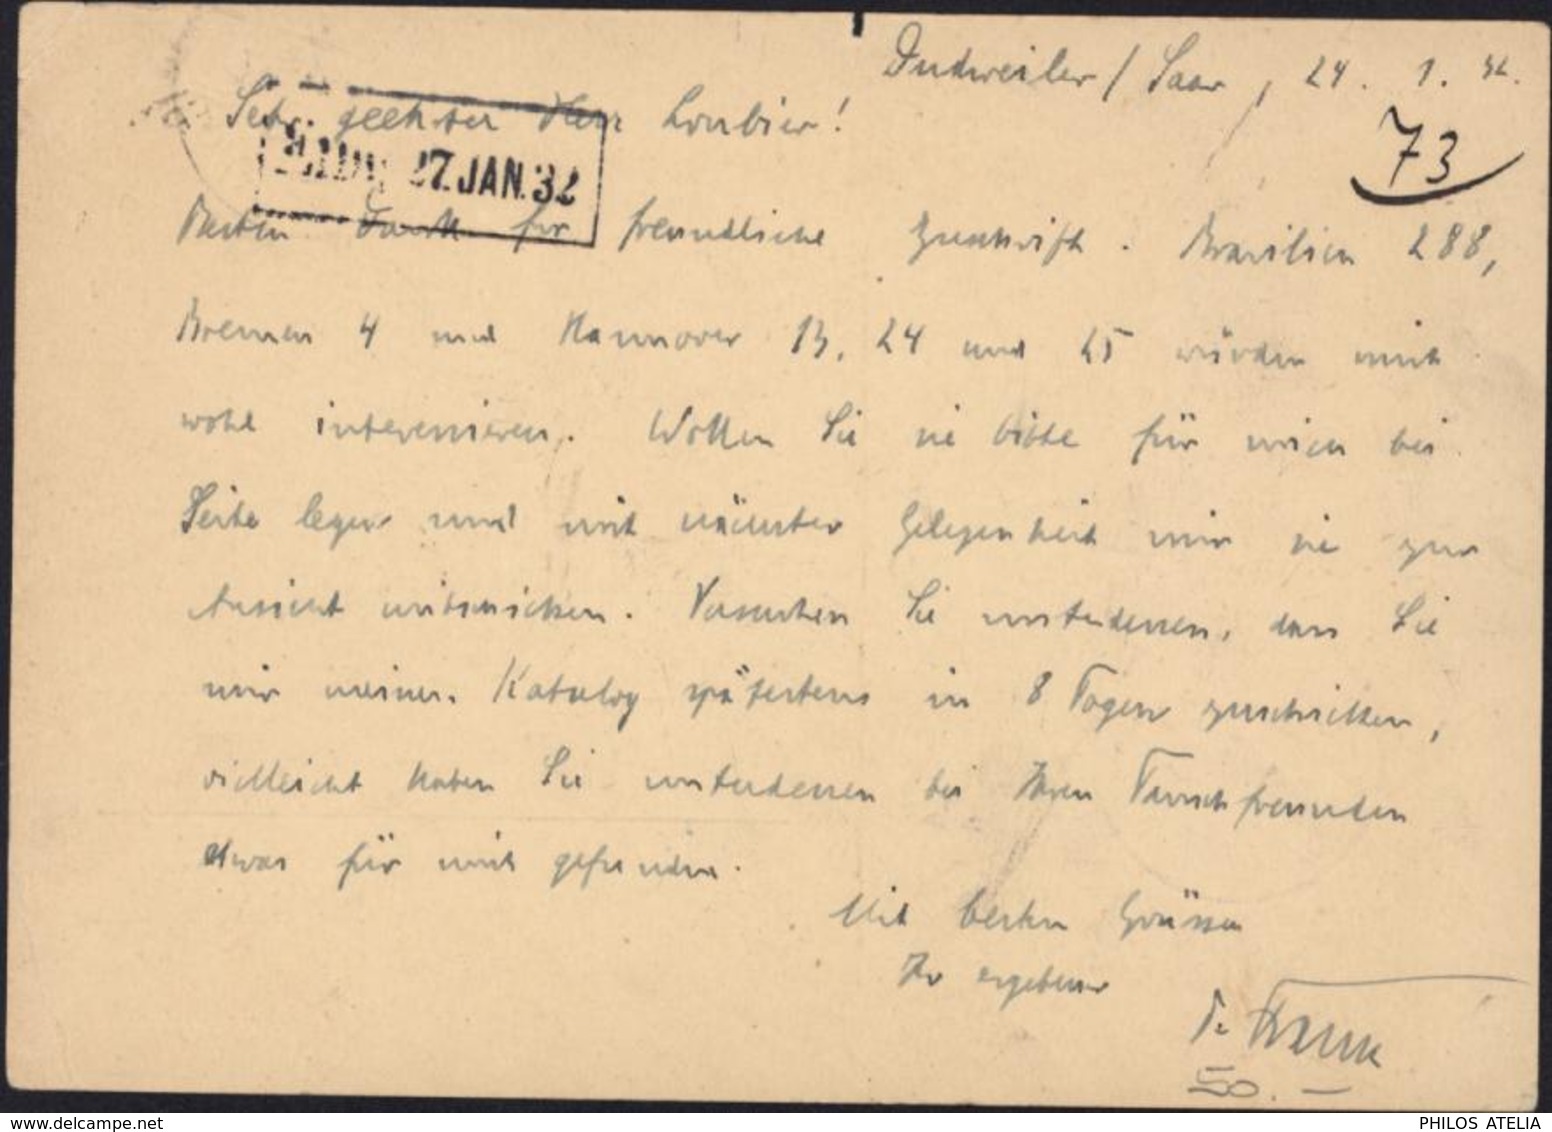 Dudweiler / Saar, 24. 1. 32.
73
Sehr geehrter Herr Loubier!
27. JAN. 32
Besten Dank für freundliche Zuschrift. Brasilien 288,
Bremen 4 und Hannover 13, 24 und 25 würden mich
wohl interessieren. Wollen Sie sie bitte für mich bei
Seite legen und mit nächster Gelegenheit mir sie zur
Ansicht mitschicken. Versuchen Sie unterdessen, dass Sie
mir meinen Katalog spätestens in 8 Tagen zuschicken,
vielleicht haben Sie unterdessen bei Ihren Tauschfreunden
etwas für mich gefunden.
Mit besten Grüssen
Ihr ergebener
50.—
PHILOS ATELIA